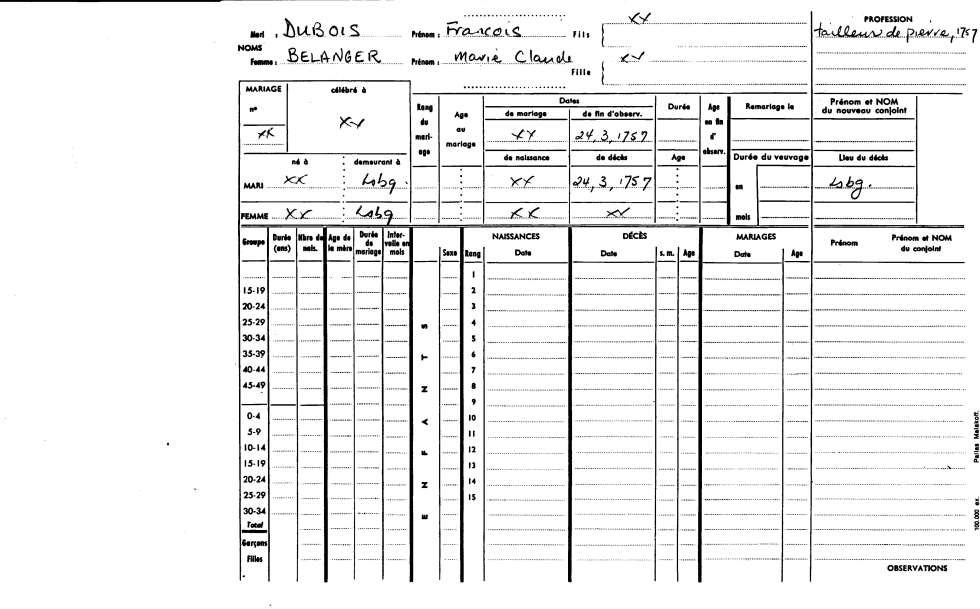 Mari : DUBOIS Prénom : Francois Fils XX
NOMS
Femme : BELANGER Prénom : Marie Claude Fille XX
PROFESSION
tailleur de pierre, 1757
MARIAGE célébré à
n° XX XX
Rang du mari- age
Age au mariage
Dates
de mariage de fin d'observ.
XX 24, 3, 1757
Durée
Age en fin d' observ.
Remariage le
Prénom et NOM du nouveau conjoint
né à demeurant à
de naissance de décès Age
Durée du veuvage
Lieu du décès
MARI XX Lsbg. XX 24, 3, 1757 en Lsbg.
FEMME XX Lsbg XX XX mois
Groupe Durée (ans) Nbre de nais. Age de la mère Durée de mariage Inter- valle en mois Sexe Rang
NAISSANCES Date
DÉCÈS Date s. m. Age
MARIAGES Date Age
Prénom Prénom et NOM du conjoint
E N F A N T S
1
15-19 2
20-24 3
25-29 4
30-34 5
35-39 6
40-44 7
45-49 8
9
0-4 10
5-9 11
10-14 12
15-19 13
20-24 14
25-29 15
30-34
Total
Garçons
Filles
OBSERVATIONS
100.000 ex. Patins Malakoff.